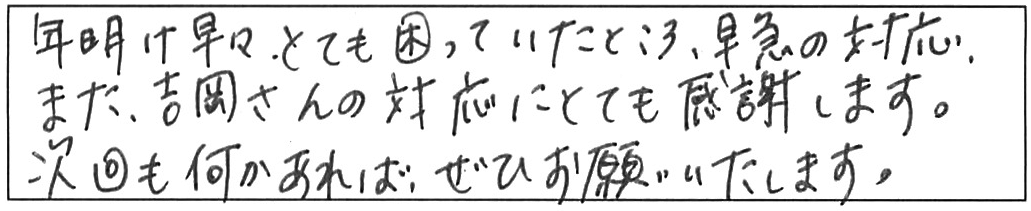 年明け早々、とても困っていたところ、早急の対応、
また、吉岡さんの対応にとても感謝します。
次回も何かあれば、ぜひお願いいたします。